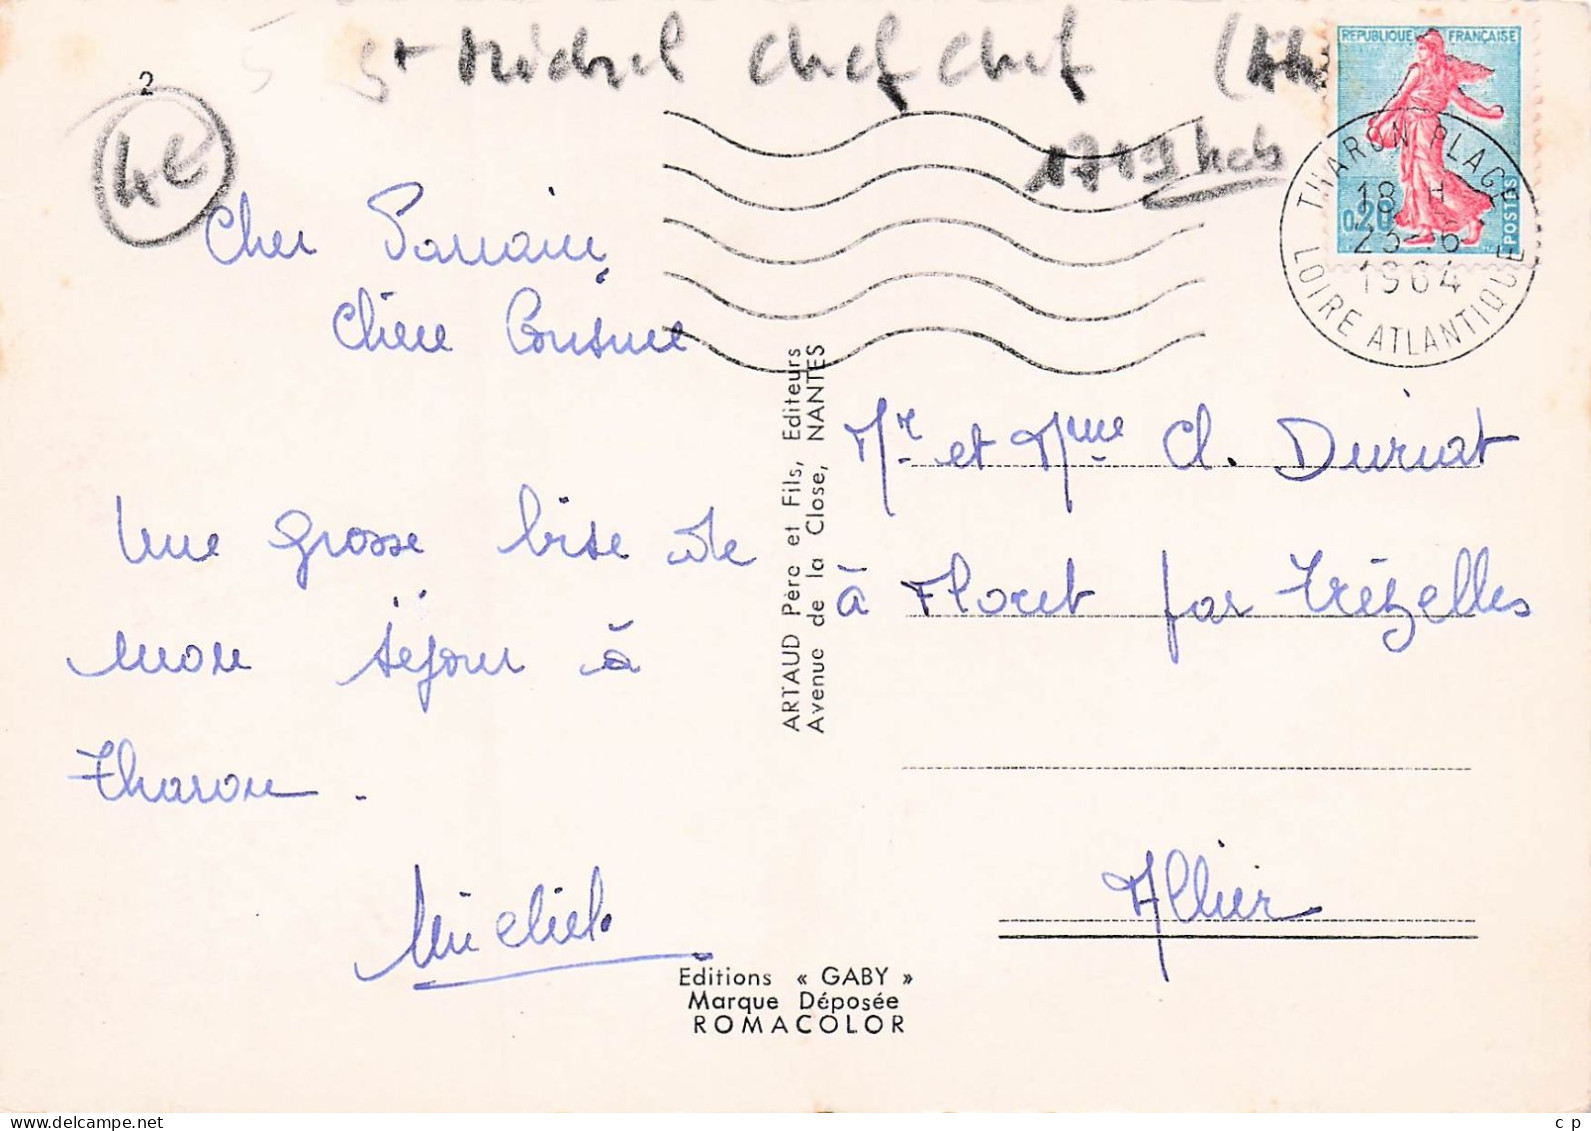 St Michel Chef Chef
2
4€
REPUBLIQUE FRANÇAISE
0,20
POSTES
THARON PLAGE
18 H
23-6
1964
LOIRE ATLANTIQUE
Cher Parrain
Chère Cousine
Une grosse bise de
mon séjour à
Tharon.
Michel
ARTAUD Père et Fils, Editeurs
Avenue de la Close, NANTES
Mr et Mme Cl. Duriat
à Floret par Trézelles
Allier
Editions « GABY »
Marque Déposée
ROMACOLOR
c p